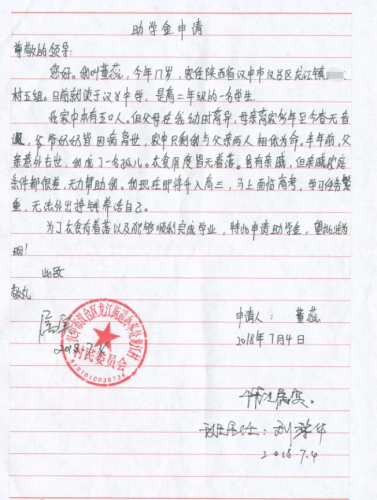 助学金申请
尊敬的领导:
您好。我叫董蕊,今年17岁,家住陕西省汉中市汉台区龙江镇
村五组。目前就读于汉台中学,是高二年级的一名学生。
我家中本有五口人。但父母在我幼时离异,母亲离家多年至今杳无音
讯,父爷奶奶皆因病离世,家中只剩我与父亲两人相依为命。半年前,父
亲意外去世,我成了一名孤儿。衣食用度皆无着落。虽有亲戚,但亲戚家庭
条件都很差,无力帮助我。如现在即将升入高三,马上面临高考,学习任务繁
重,无法外出挣钱养活自己。
为了衣食有着落以及能够顺利完成学业,特此申请助学金,望批准为
盼!
此致
敬礼
申请人: 董蕊
2018年7月4日
属实
2018.7.
村民委员会
6107010038734
情况属实。
班主任:
2018.7.4